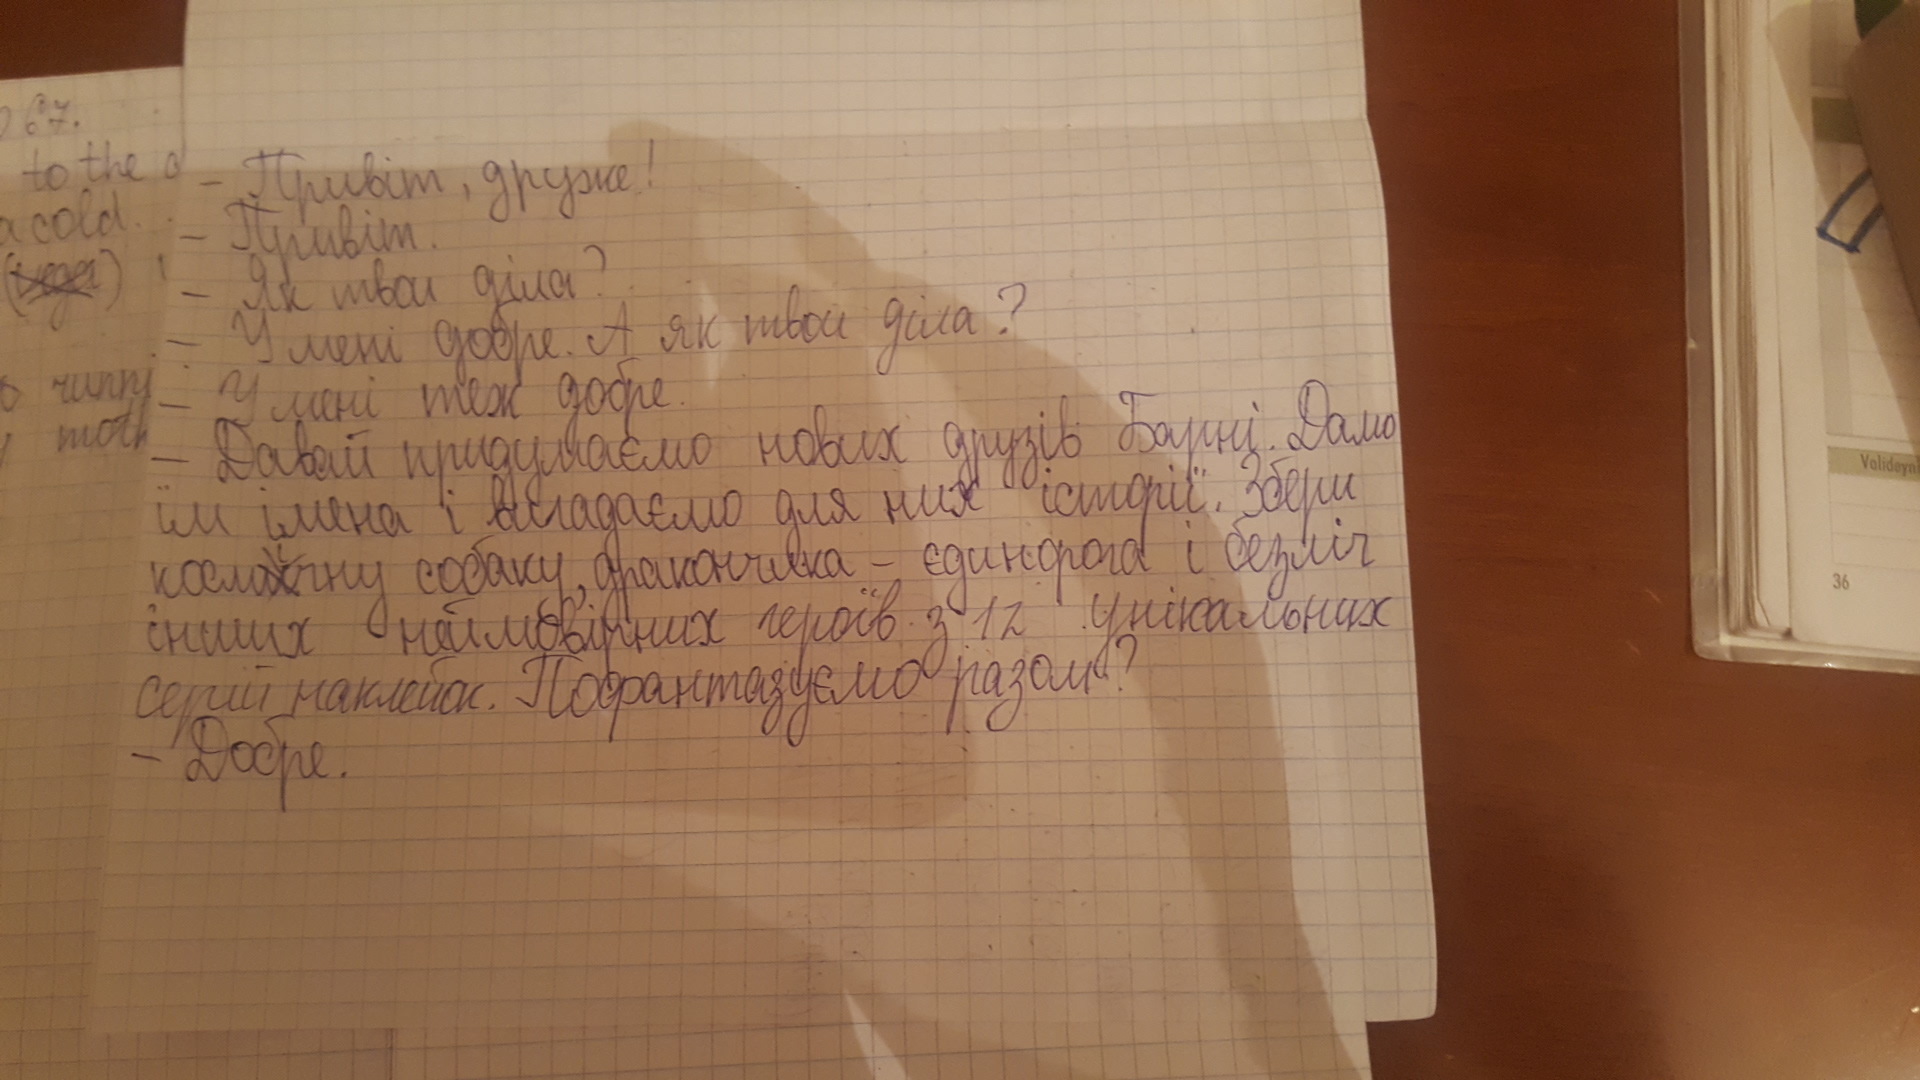 67.
to the
a cold.
- Привіт, друже!
- Привіт.
- Як твои діла?
- У мені добре. А як твои діла?
- У мені теж добре.
- Давай придумаємо нових друзів Барні. Дамо
їм імена і вкладаємо для них історії. Збери
космічну собаку, дракончика - єдинорога і безліч
інших неймовірних героїв з 12 унікальних
серій наклейок. Пофантазуємо разом?
- Добре.
36